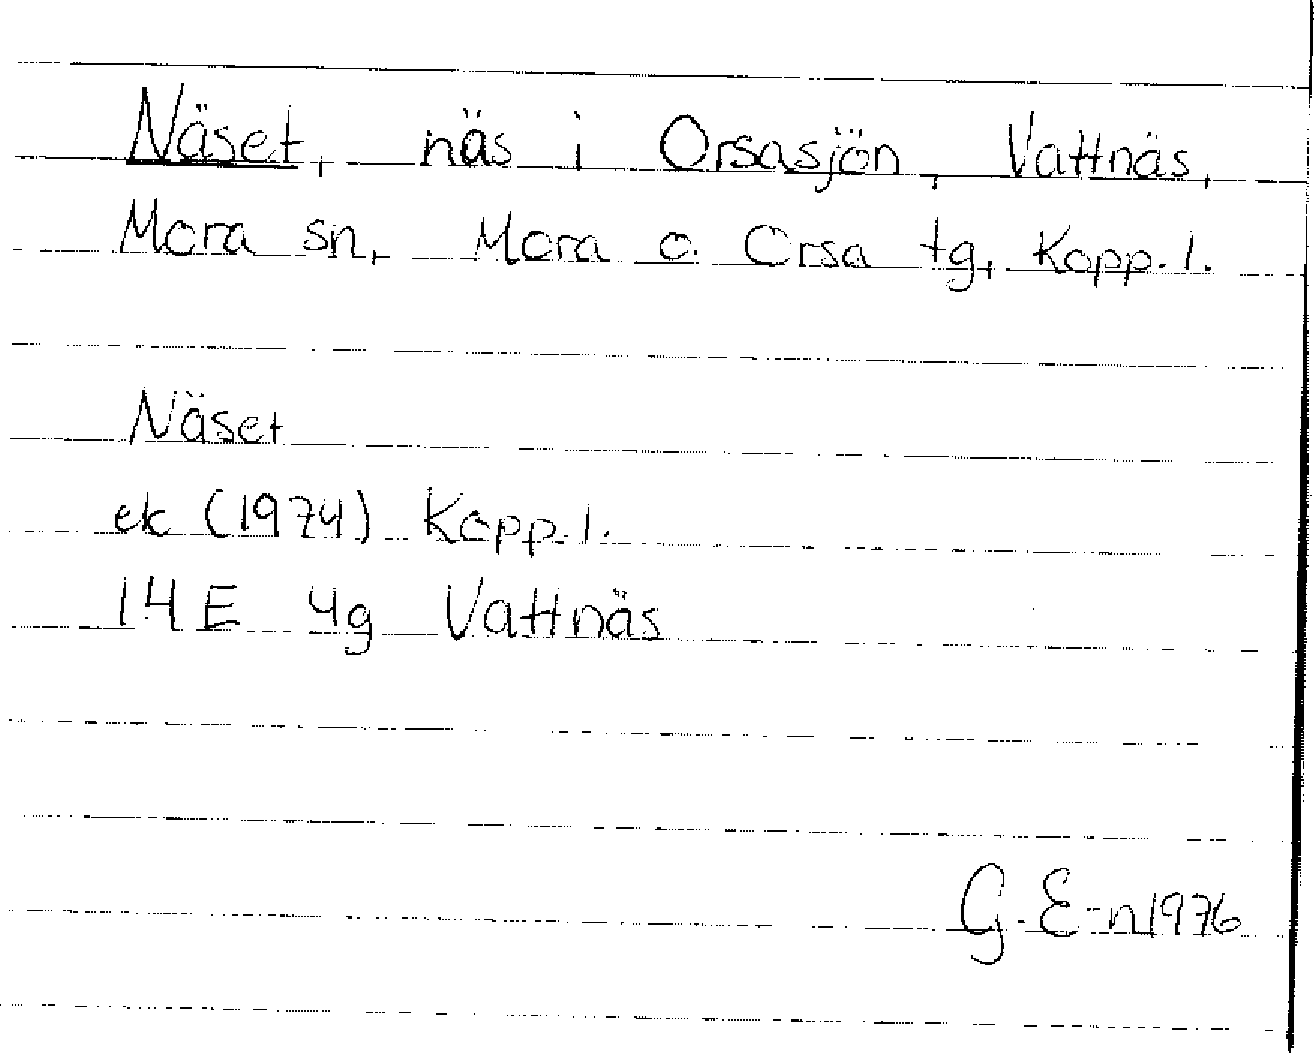 Näset, näs i Orsasjön, Vattnäs,
Mora sn, Mora o. Orsa tg, Kopp. l.
Näset
ek (1974) Kopp. l.
14E 4g Vattnäs
G. E-n 1976